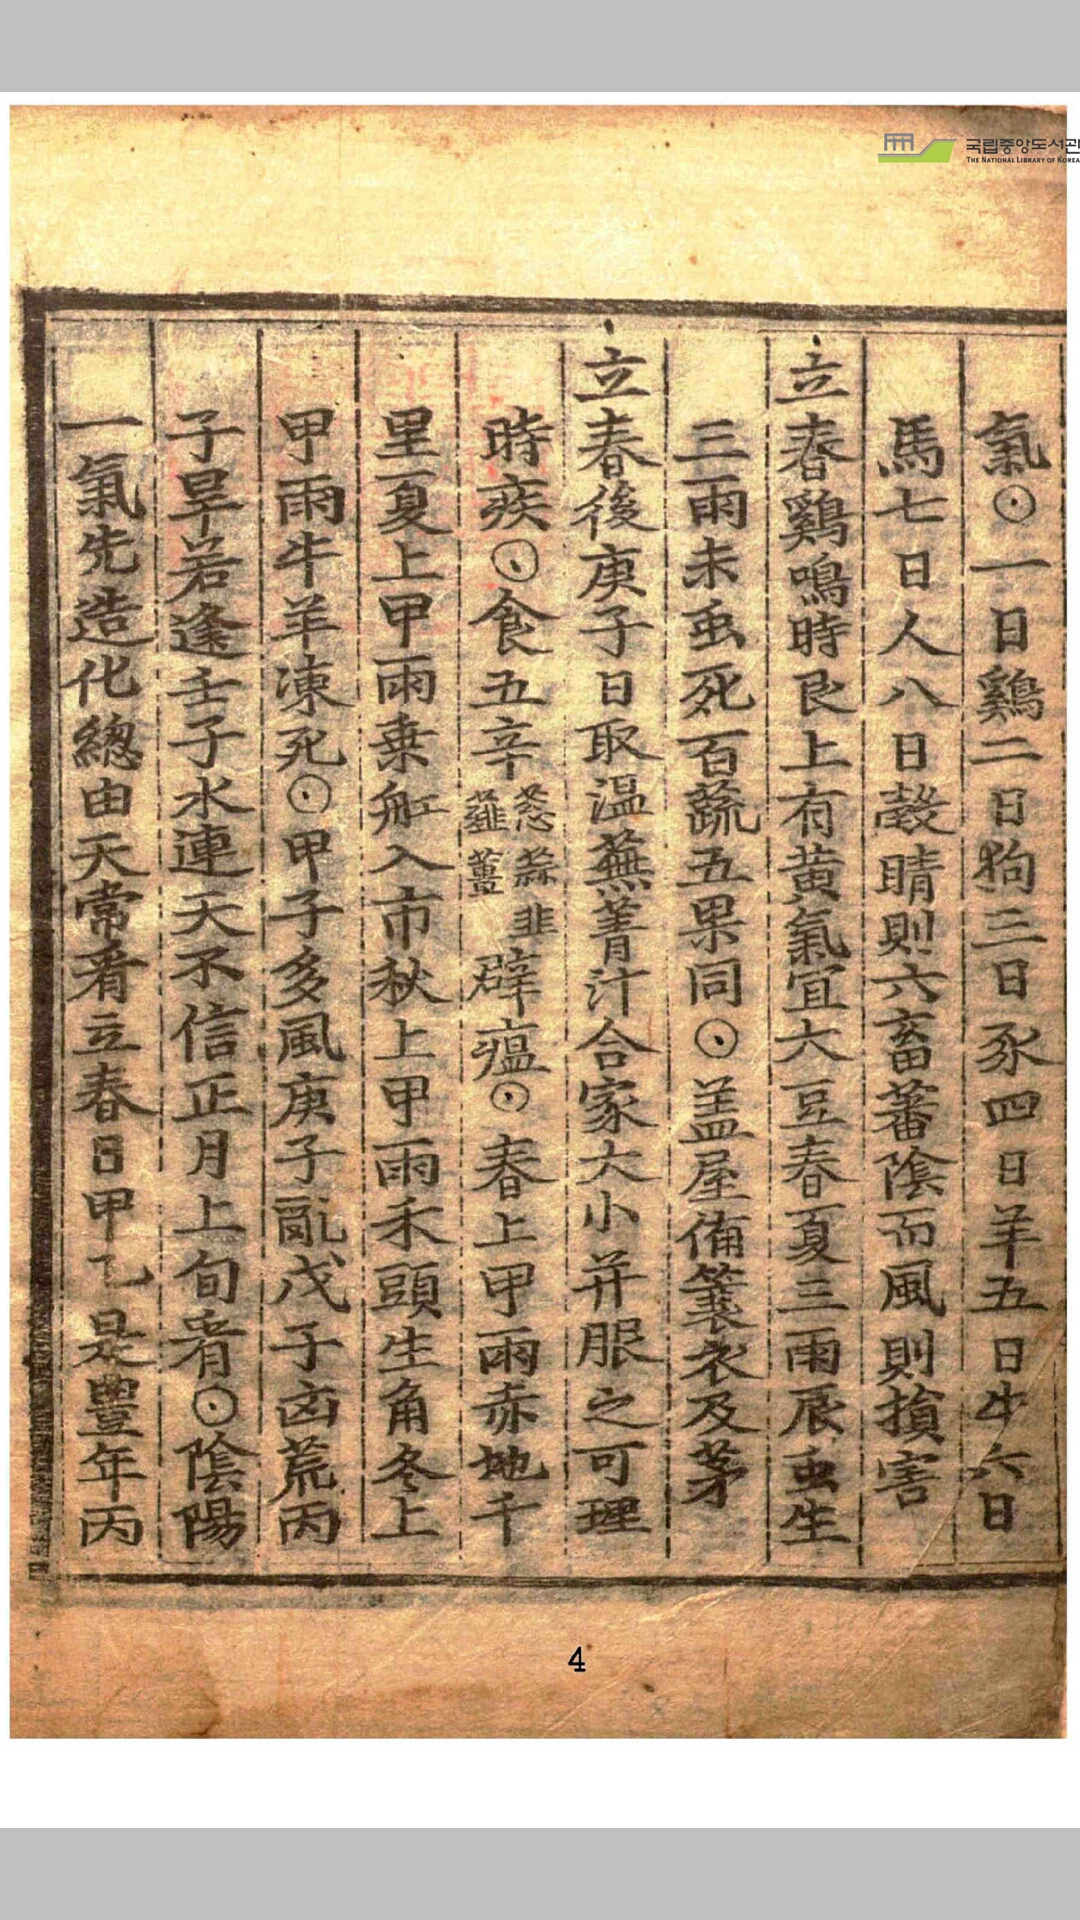 국립중앙도서관
THE NATIONAL LIBRARY OF KOREA
氣⊙一日鷄二日狗三日豕四日羊五日牛六日
馬七日人八日穀晴則六畜蕃陰而風則損害
立春鷄鳴時艮上有黃氣宜大豆春夏三雨辰虫生
三雨未虫死百蔬五果同⊙盖屋備簑衣及茅
立春後庚子日取溫蕪菁汁合家大小并服之可理
時疾⊙食五辛葱蒜韭薤薑辟瘟⊙春上甲雨赤地千
里夏上甲雨乗舡入市秋上甲雨禾頭生角冬上
甲雨牛羊凍死⊙甲子多風庚子亂戊子凶荒丙
子旱若逢壬子水連天不信正月上旬看⊙陰陽
一氣先造化總由天常看立春日甲乙是豊年丙
4